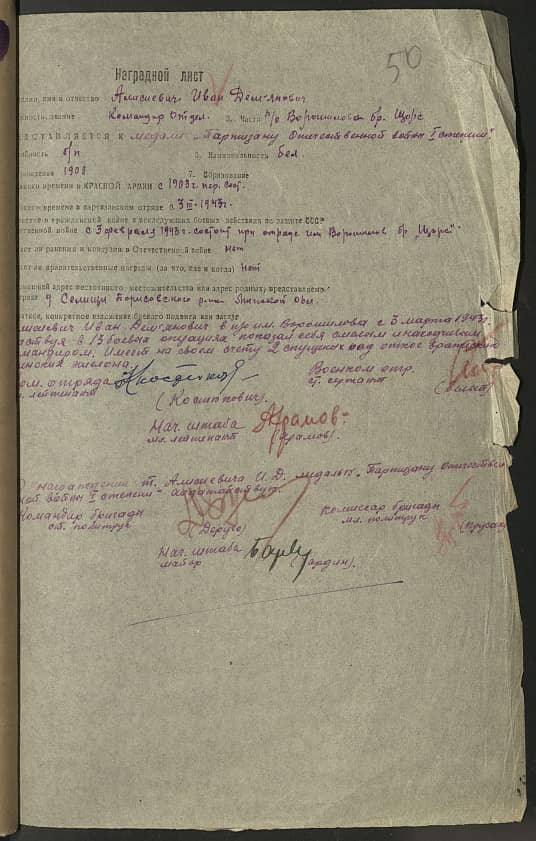 50
Наградной лист
имя и отчество Алисиевич Иван Демьянович
звание Командир Отдел. 3. Часть п/о Ворошилова бр. Щорс
ДСТАВЛЯЕТСЯ К медали "Партизану Отечественной войны I степени"
б/п 5. Национальность бел.
рождения 1908 7. Образование
времени в КРАСНОЙ АРМИИ с 1903 г. пер. сост.
времени в партизанском отряде с 3 III-1943 г.
в гражданской войне и последующих боевых действиях по защите СССР
ственной войне с 3 февраля 1943 г. состоит при отряде им Ворошилов бр. "Щорс".
ли ранения и контузии в Отечественной войне нет
ли правительственные награды (за что, как и когда) нет
адрес местожительства или адрес родных представляем
д. Селищи Борисовского р-на Минской обл.
конкретное изложение боевого подвига или заслуг
Иван Демьянович в п/о им. Ворошилова с 3 марта 1943 г.
в 13 боевых операциях показал себя смелым и находчивым
командиром. Имеет на своем счету 2 спущенных под откос вражеских
эшелона.
отряда Военком отр.
лейтенант
(Костпович)
Нач. штаба
мл. лейтенант (Храмов).
О награждении т. Алисиевича И. Д. медалью "Партизану Отечествен
ной войны I степени" ходатайствую.
Командир бригады Комиссар бригады
ст. политрук мл. политрук
(Деруго)
Нач. штаба
майор